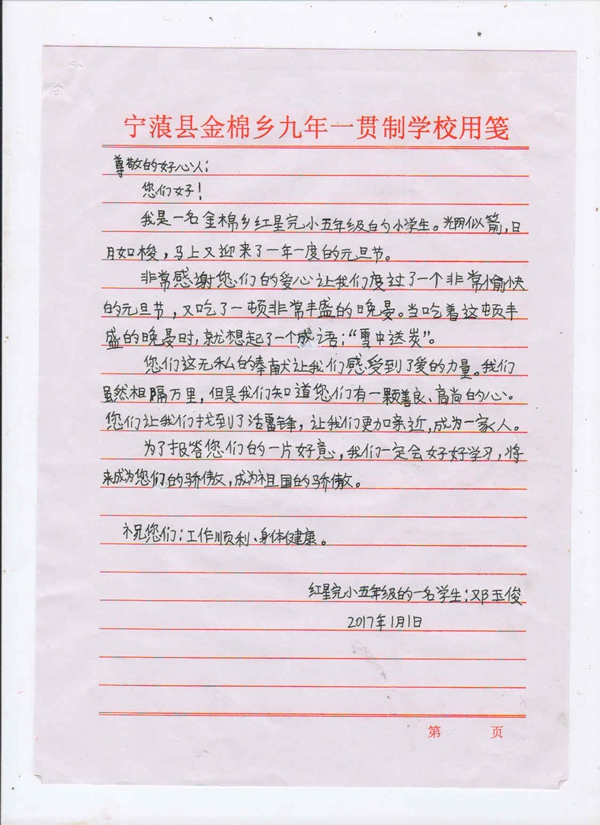 宁蒗县金棉乡九年一贯制学校用笺
尊敬的好心人:
您们好!
我是一名金棉乡红星完小五年级的小学生。光阴似箭,日
月如梭,马上又迎来了一年一度的元旦节。
非常感谢您们的爱心让我们度过了一个非常愉快
的元旦节,又吃了一顿非常丰盛的晚晏。当吃着这顿丰
盛的晚晏时,就想起了一个成语:“雪中送炭”。
您们这无私的奉献让我们感受到了爱的力量。我们
虽然相隔万里,但是我们知道您们有一颗善良、高尚的心。
您们让我们找到了活雷锋,让我们更加亲近,成为一家人。
为了报答您们的一片好意,我们一定会好好学习,将
来成为您们的骄傲,成为祖国的骄傲。
祝您们:工作顺利、身体健康。
红星完小五年级的一名学生:邓玉俊
2017年1月1日
第 页